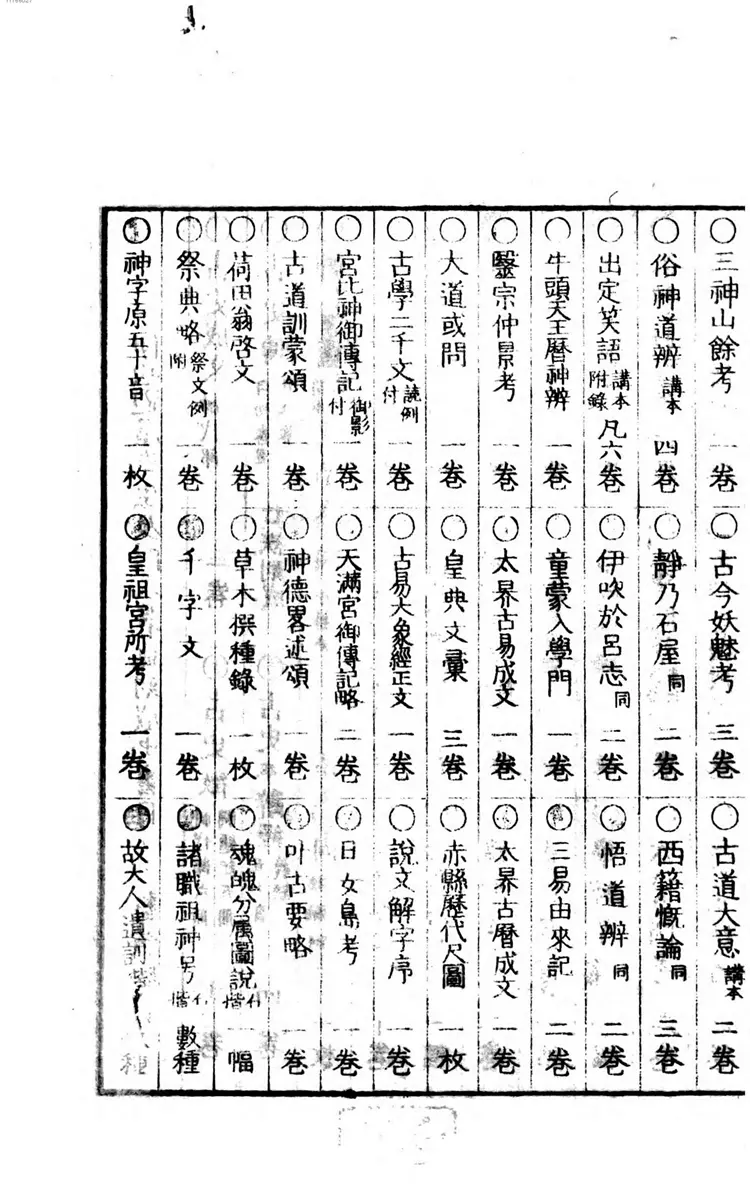 ○三神山餘考 一卷 ○古今妖魅考 三卷 ○古道大意 講本 二卷
○俗神道辨 講本 四卷 ○靜乃石屋 同 二卷 ○西籍慨論 同 三卷
○出定笑語 講本附錄 凡六卷 ○伊吹於呂志 同 二卷 ○悟道辨 同 二卷
○牛頭天王曆神辨 一卷 ○童蒙入學門 一卷 ○三易由來記 二卷
○醫宗仲景考 一卷 ○太昦古易成文 一卷 ○太昦古曆成文 一卷
○大道或問 一卷 ○皇典文彙 三卷 ○赤縣歷代尺圖 一枚
○古學二千文 読例付 一卷 ○古易大象經正文 一卷 ○說文解字序 一卷
○宮比神御傳記 御影付 一卷 ○天滿宮御傳記略 二卷 ○日女島考 一卷
○古道訓蒙頌 一卷 ○神德畧述頌 一卷 ○叶古要略 一卷
○荷田翁啓文 一卷 ○草木撰種錄 一枚 ○魂魄分属圖說 一幅
○祭典略 祭文例附 一卷 ○千字文 一卷 ○諸職祖神号 數種
○神字原五十音 一枚 ○皇祖宮所考 一卷 ○故大人遺訓 種